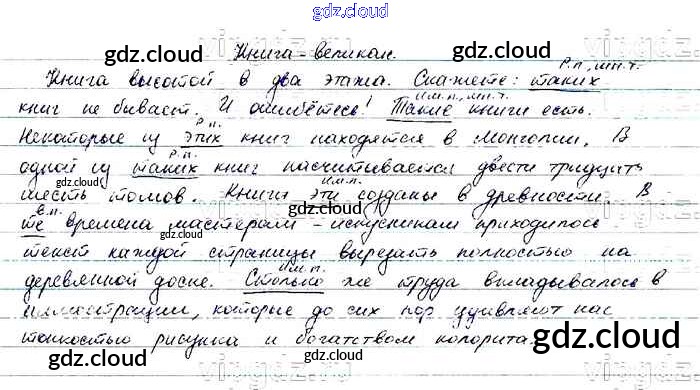 gdz.cloud
Книга-великан.
gdz.cloud gdz.cloud
Р.п., мн.ч.
Книга высотой в два этажа. Скажете: таких
И.п., мн.ч.
книг не бывает. И ошибётесь! Такие книги есть.
Р.п.
Некоторые из этих книг находятся в Монголии. В
Р.п.
одной из таких книг насчитывается двести тридцать
gdz.cloud
И.п.
шесть томов. Книги эти созданы в древности. В
gdz.cloud
В.п.
те времена мастерам-искусникам приходилось
текст каждой страницы вырезать полностью на
gdz.cloud gdz.cloud
Им.п.
деревянной доске. Столько же труда вкладывалось в
иллюстрации, которые до сих пор удивляют нас
тонкостью рисунка и богатством колорита.
gdz.cloud
gdz.cloud